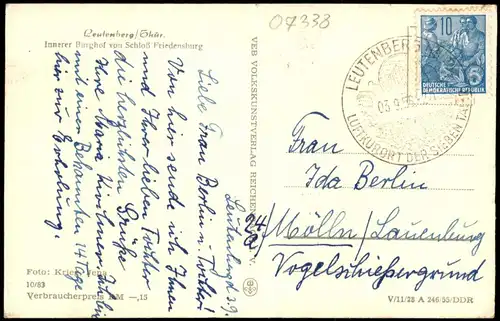 07338
Leutenberg/Thür.
Innerer Burghof von Schloß Friedensburg
Leutenberg d. 3.9.
Liebe Frau Berlin u. Tochter!
Von hier sende ich Ihnen
und Ihrer lieben Tochter
die herzlichsten Grüße
Ihre Maria Kirchner. Ich bin
mit einer Bekannten 14 Tage
hier zur Erholung.
Foto: Krier, Jena
10/83
Verbraucherpreis DM —,15
VEB VOLKSKUNSTVERLAG REICHENBACH
LEUTENBERG
03.9.
LUFTKURORT DER SIEBEN
10
DEUTSCHE
DEMOKRATISCHE REPUBLIK
Frau
Ida Berlin
24a
Mölln/Lauenburg
Vogelschießergrund
V/11/28 A 246/55/DDR